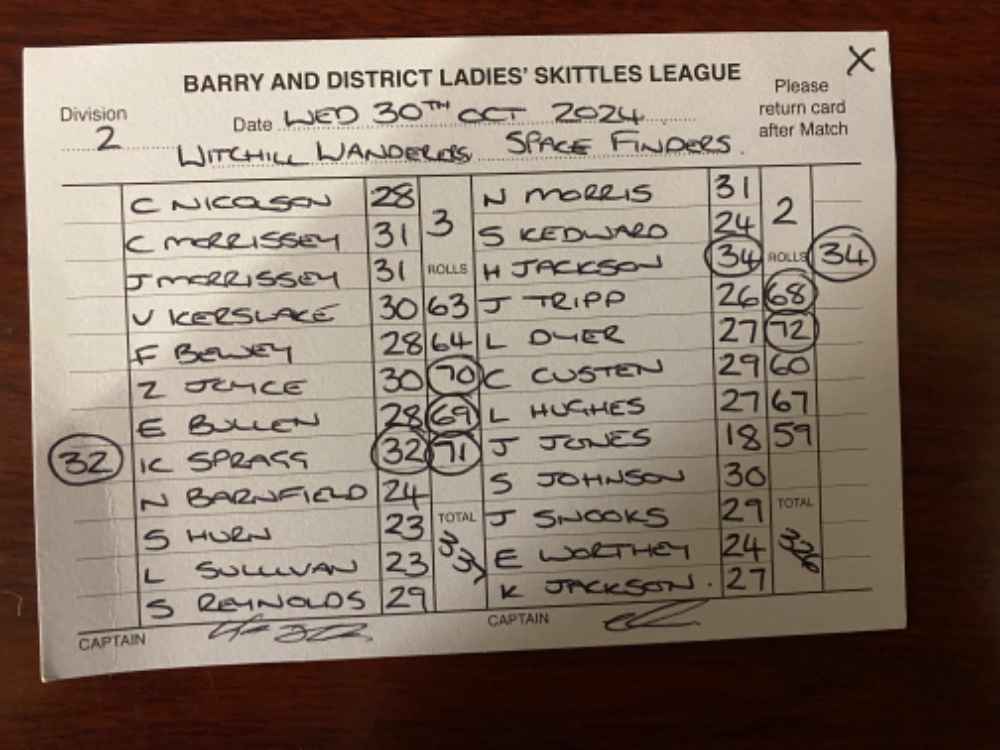 X
BARRY AND DISTRICT LADIES' SKITTLES LEAGUE
Division 2
Date WED 30TH OCT 2024
Please
return card
after Match
WITCHILL WANDERERS SPACE FINDERS
C NICOLSON 28 3 N MORRIS 31 2
C MORRISSEY 31 S KEDWARD 24
J MORRISSEY 31 ROLLS H JACKSON 34 ROLLS 34
V KERSLAKE 30 63 J TRIPP 26 68
F BEWEY 28 64 L DYER 27 72
Z JOYCE 30 70 C CUSTEN 29 60
E BULLEN 28 69 L HUGHES 27 67
32 K SPRAGG 32 71 J JONES 18 59
N BARNFIELD 24 S JOHNSON 30
S HURN 23 TOTAL J SNOOKS 29 TOTAL
L SULLIVAN 23 337 E WORTHEY 24 326
S REYNOLDS 29 K JACKSON 27
CAPTAIN CAPTAIN